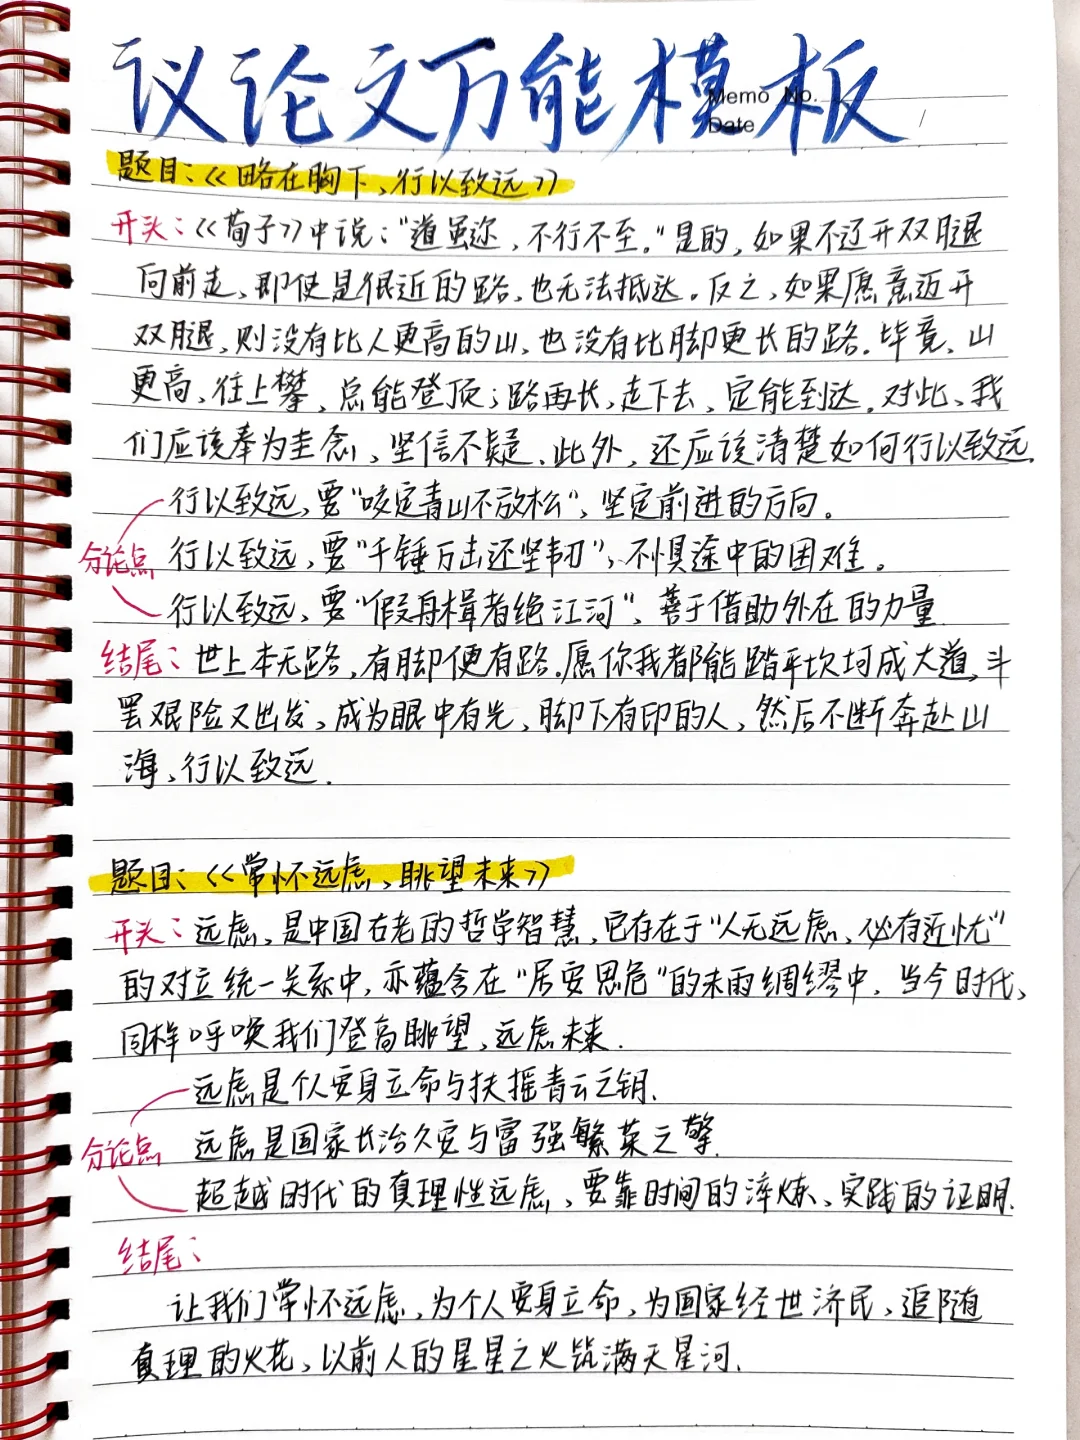 议论文万能模板
Memo No.
Date
题目：《略在胸下，行以致远》
开头：《荀子》中说："道虽迩，不行不至。"是的，如果不迈开双腿
向前走，即使是很近的路，也无法抵达。反之，如果愿意迈开
双腿，则没有比人更高的山，也没有比脚更长的路。毕竟，山
更高，往上攀，总能登顶；路再长，走下去，定能到达。对此，我
们应该奉为圭念，坚信不疑。此外，还应该清楚如何行以致远。
行以致远，要"咬定青山不放松"，坚定前进的方向。
分论点
行以致远，要"千锤万击还坚韧"，不惧途中的困难。
行以致远，要"假舟楫者绝江河"，善于借助外在的力量
结尾：世上本无路，有脚便有路。愿你我都能踏平坎坷成大道，斗
罢艰险又出发，成为眼中有光，脚下有印的人，然后不断奔赴山
海，行以致远.
题目：《常怀远虑，眺望未来》
开头：远虑，是中国古老的哲学智慧，它存在于"人无远虑，必有近忧"
的对立统一关系中，亦蕴含在"居安思危"的未雨绸缪中．当今时代，
同样呼唤我们登高眺望，远虑未来．
远虑是个人安身立命与扶摇青云之钥．
分论点
远虑是国家长治久安与富强繁荣之擎．
超越时代的真理性远虑，要靠时间的淬炼，实践的证明．
结尾：
让我们常怀远虑，为个人安身立命，为国家经世济民，追随
真理的火花，以前人的星星之火筑满天星河．